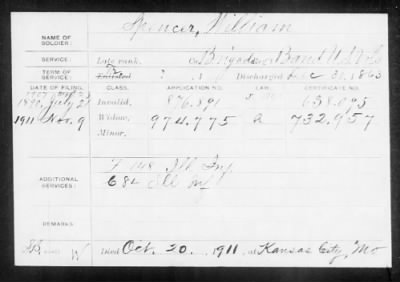 NAME OF SOLDIER: Spencer, William
SERVICE: Late rank, Co. Brigade Band U.S. Vols
TERM OF SERVICE: Enlisted ? , 1 Discharged 30, 1865
DATE OF FILING. CLASS. APPLICATION NO. LAW. CERTIFICATE NO.
1890 July 21 Invalid, 876.891 638.095
1911 Nov. 9 Widow, 974.775 a 732.957
Minor,
ADDITIONAL SERVICES: F 148 Ill Inf
68 Ill Inf
REMARKS
Died Oct. 20, 1911, at Kansas City, Mo